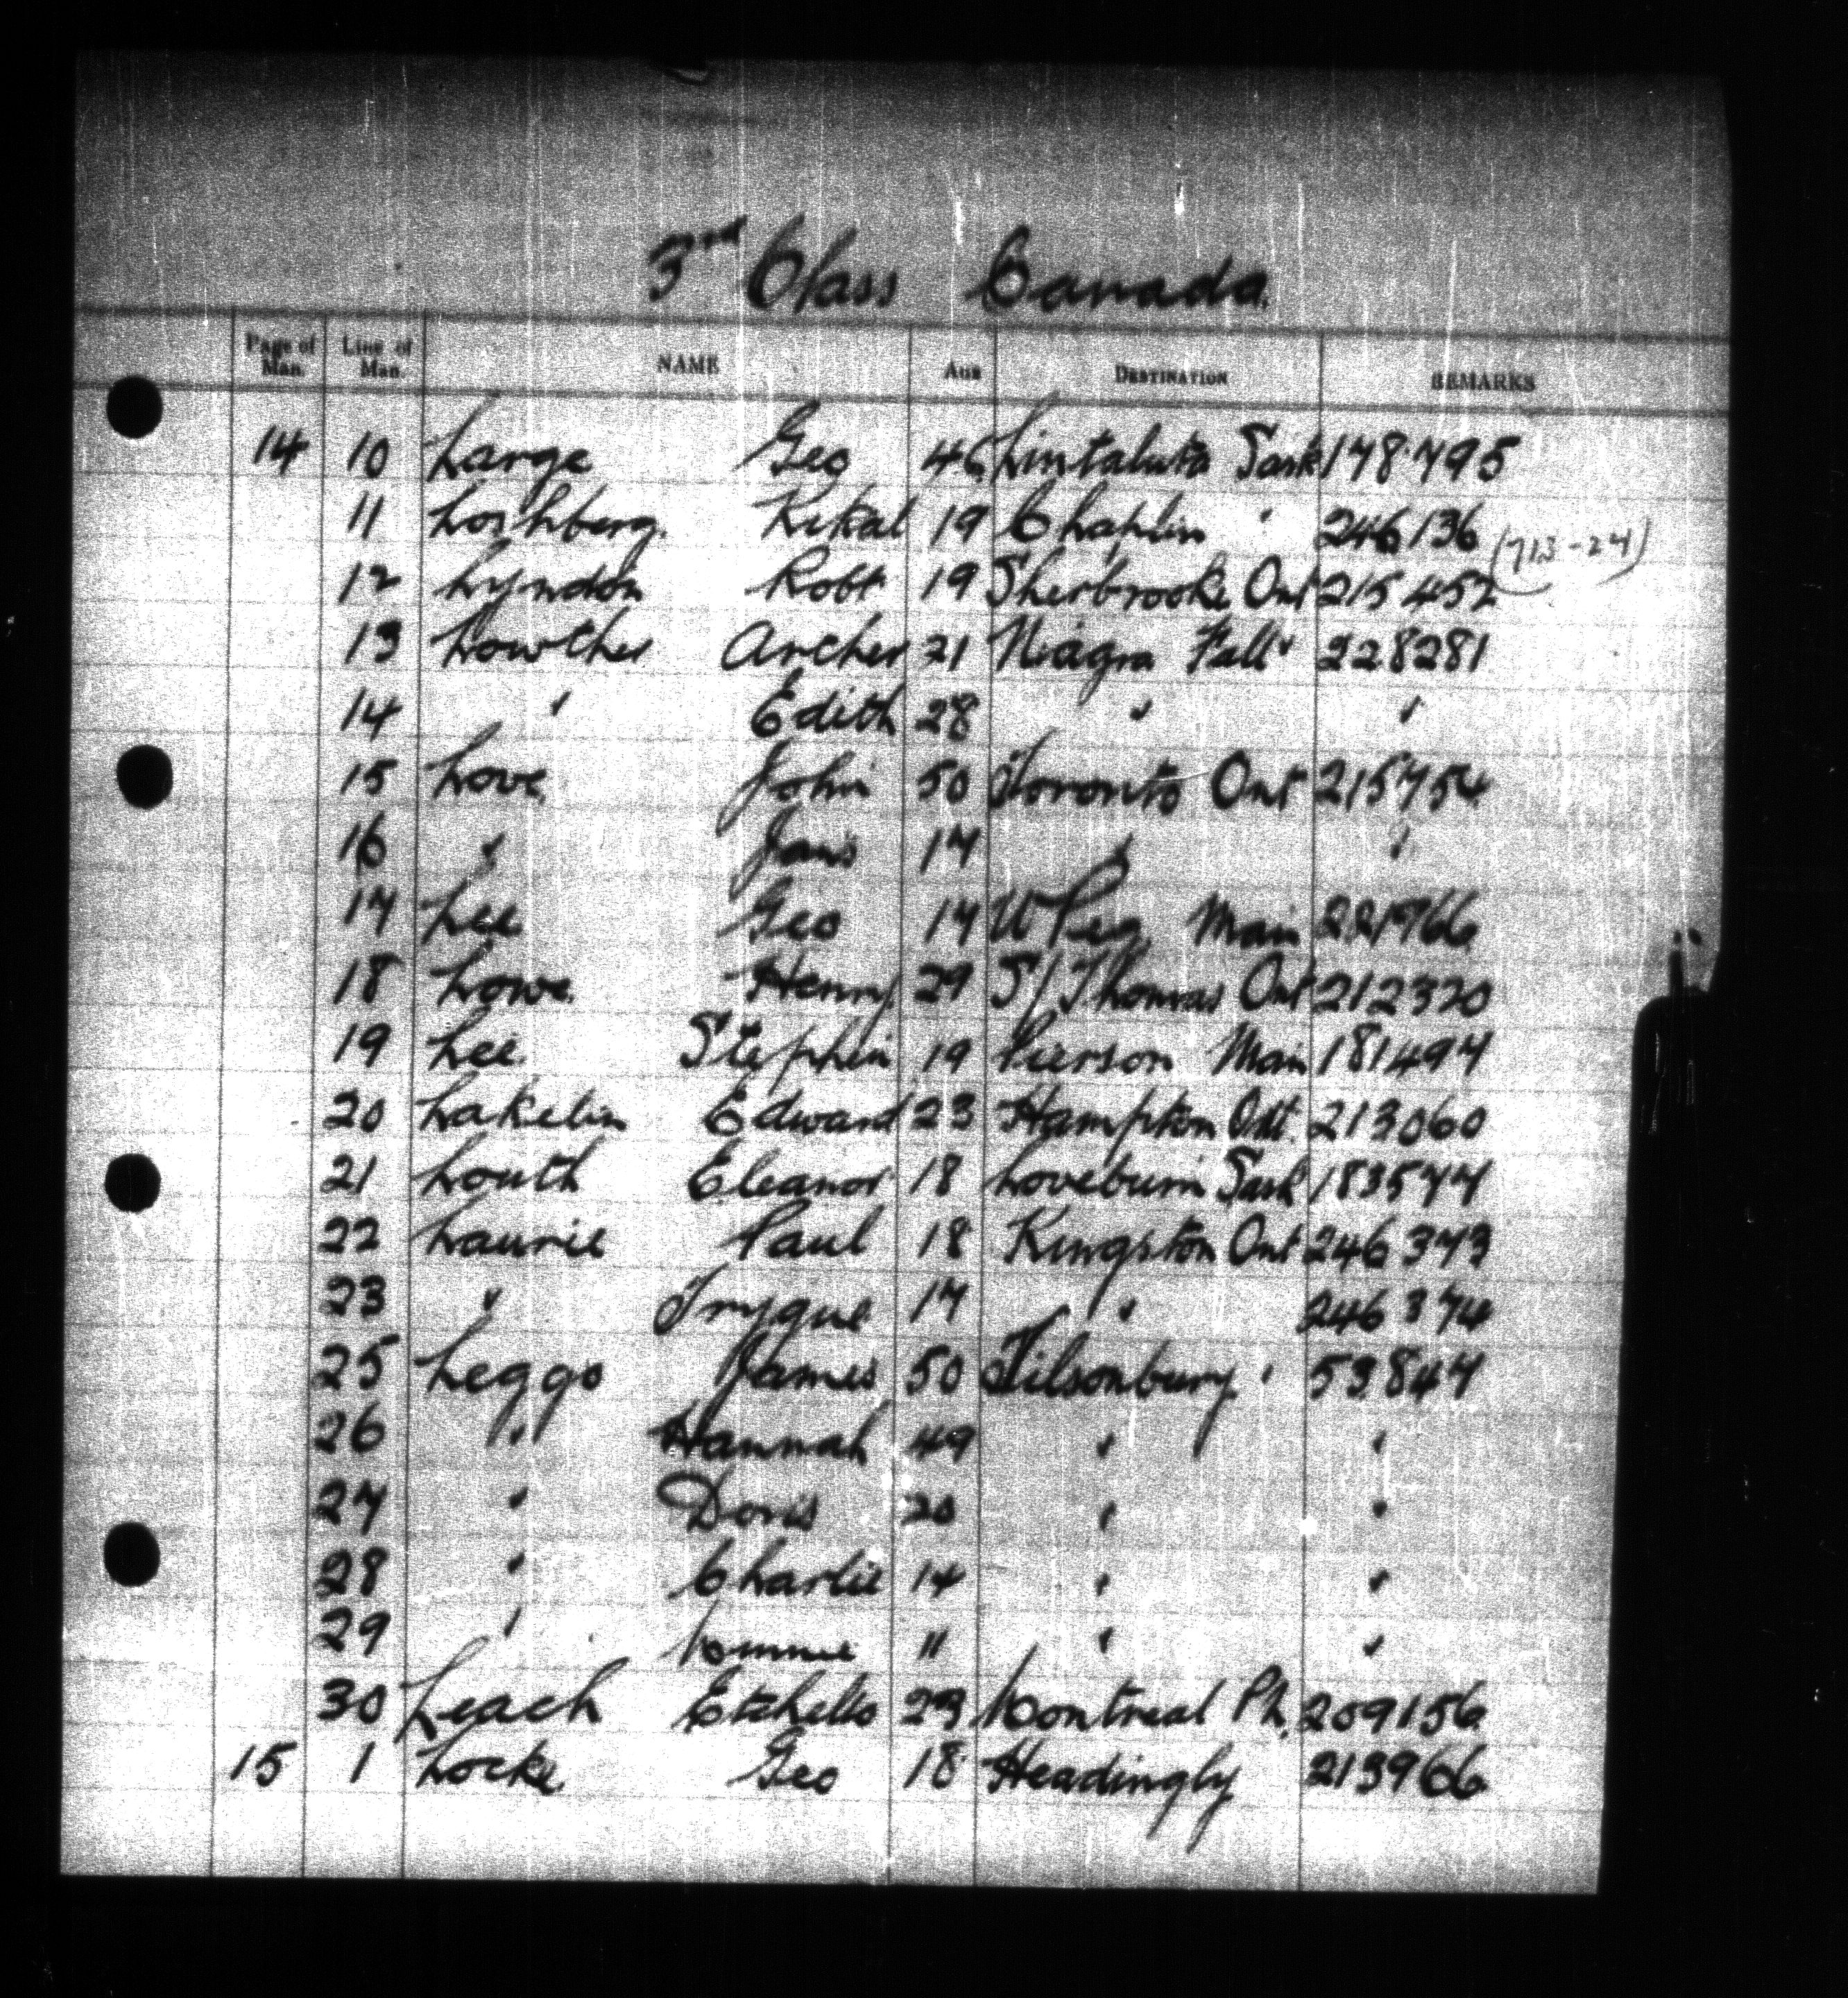 3rd Class Canada.
Page of Man. Line of Man. NAME AGE DESTINATION REMARKS
14 10 Large Geo 46 Lintaluta Sask 178795
11 Loshberg. Kekal 19 Chaplin " 246136 (713-24)
12 Lyndon Robt 19 Sherbrooke Ont 215452
13 Lowther Archer 21 Niagra Falls 228281
14 " Edith 28 " "
15 Love John 50 Toronto Ont 215754
16 " 17 " "
17 Lee Geo 17 W Peg Man 221766
18 Lowe Henry 29 St Thomas Ont 212320
19 Lee Stephen 19 Pierson Man 181497
20 Lakelin Edward 23 Hampton Ont. 213060
21 Louth Eleanor 18 Loveburn Sask 183577
22 Laurie Paul 18 Kingston Ont 246373
23 " Trygue 17 " 246374
25 Leggo James 50 Tilsonbury " 53847
26 " Hannah 49 " "
27 " Doris 20 " "
28 " Charlie 14 " "
29 " 11 " "
30 Leach Etchells 29 Montreal 209156
15 1 Locke Geo 18 Headingly 213966